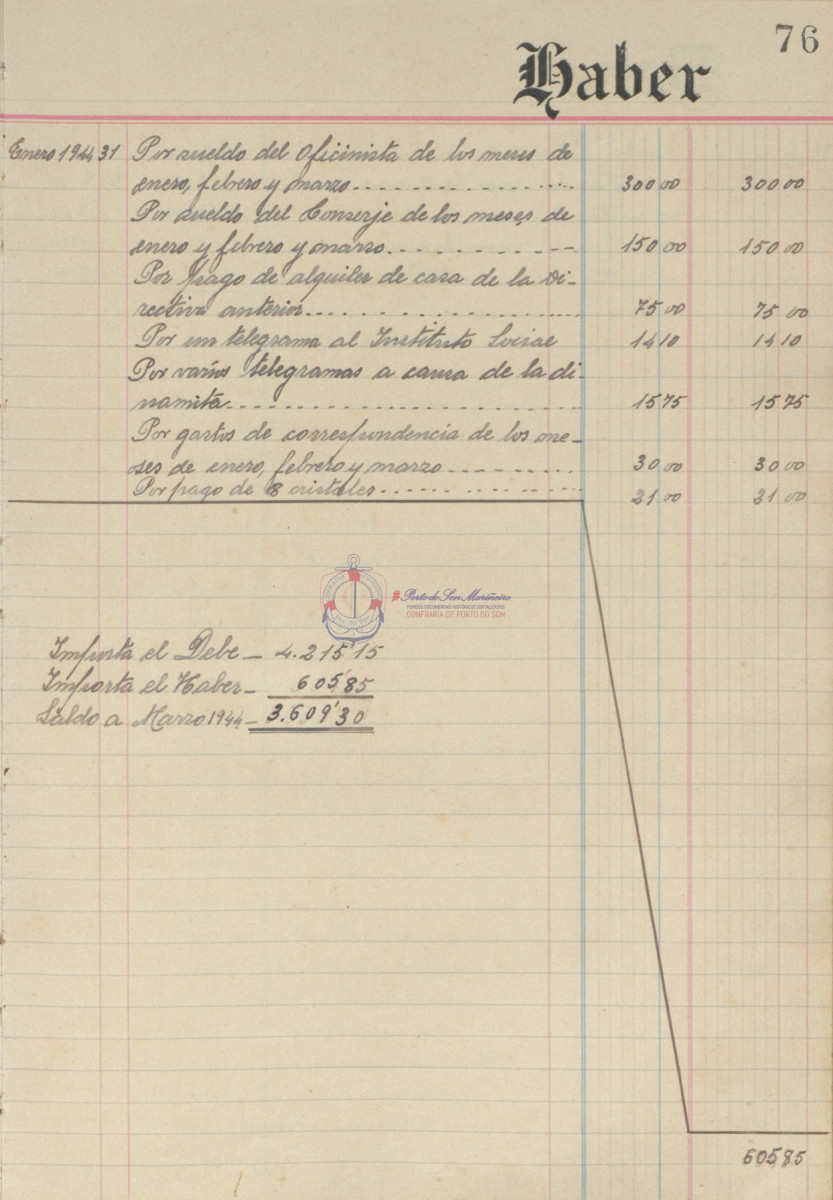 76
Haber
Enero 1944 31 Por sueldo del Oficinista de los meses de
enero, febrero y marzo 300 00 300 00
Por sueldo del Conserje de los meses de
enero y febrero y marzo 150 00 150 00
Por pago de alquiler de casa de la Di-
rectiva anterior 75 00 75 00
Por un telegrama al Instituto Social 14 10 14 10
Por varios telegramas a causa de la di-
namita 15 75 15 75
Por gastos de correspondencia de los me-
ses de enero, febrero y marzo 30 00 30 00
Por pago de 8 cristales 21 00 21 00
#Porto do Son Mariñeiro
FONDOS DOCUMENTAIS HISTÓRICOS DIXITALIZADOS
CONFRARÍA DE PORTO DO SON
Importa el Debe - 4.215'15
Importa el Haber - 605'85
Saldo a Marzo 1944 - 3.609'30
605,85